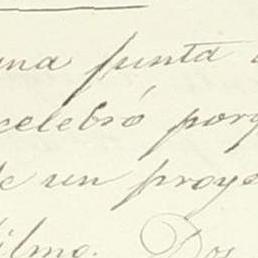 una junta
celebró porq
de un proye
Ilmo. Dos